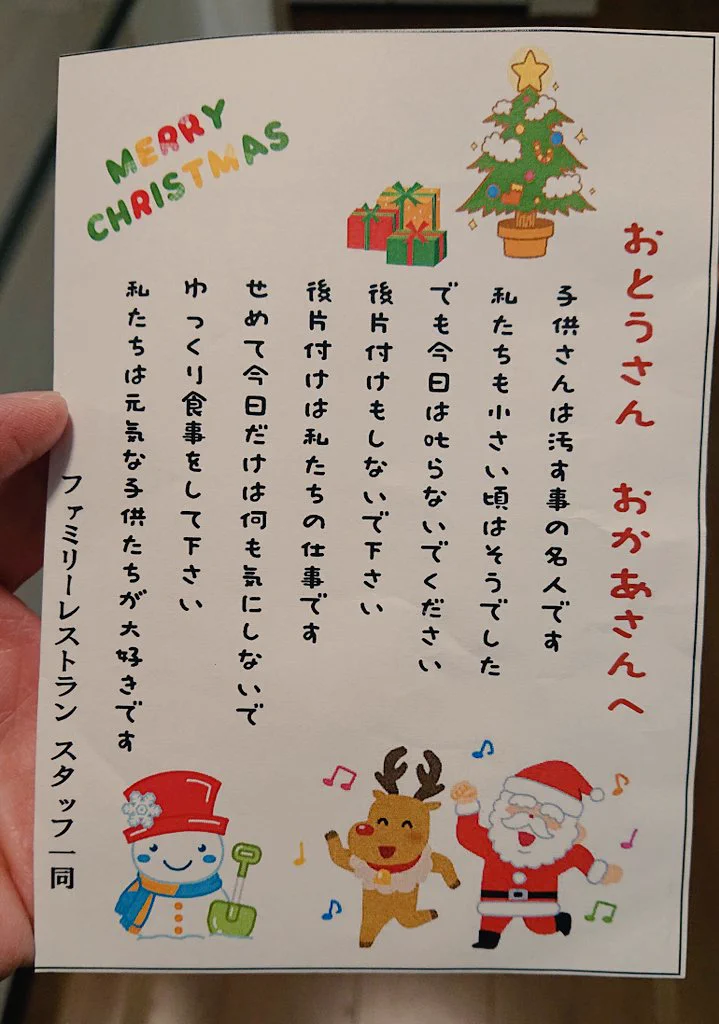 MERRY
CHRISTMAS
おとうさん おかあさんへ
子供さんは汚す事の名人です
私たちも小さい頃はそうでした
でも今日は叱らないでください
後片付けもしないで下さい
後片付けは私たちの仕事です
せめて今日だけは何も気にしないで
ゆっくり食事をして下さい
私たちは元気な子供たちが大好きです
ファミリーレストラン スタッフ一同